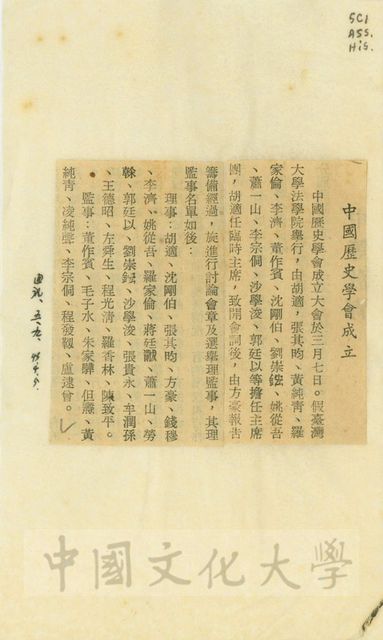 SCI
ASS.
His.
中國歷史學會成立
中國歷史學會成立大會於三月七日。假臺灣
大學法學院舉行，由胡適，張其昀、黃純青、羅
家倫、李濟、董作賓、沈剛伯、劉崇鋐、姚從吾
、蕭一山、李宗侗、沙學浚、郭廷以等擔任主席
團，胡適任臨時主席，致開會詞後，由方豪報告
籌備經過，旋進行討論會章及選舉理監事，其理
監事名單如後：
理事：胡適、沈剛伯、張其昀、方豪、錢穆
、李濟、姚從吾、羅家倫、蔣廷黻、蕭一山、勞
榦、郭廷以、劉崇鋐、沙學浚、張貴永、牟潤孫
、王德昭、左舜生、程光清、羅香林、陳致平。
監事：董作賓、毛子水、朱家驊、但燾、黃
純青、凌純聲、李宗侗、程發軔、盧逮曾。
中國文化大學